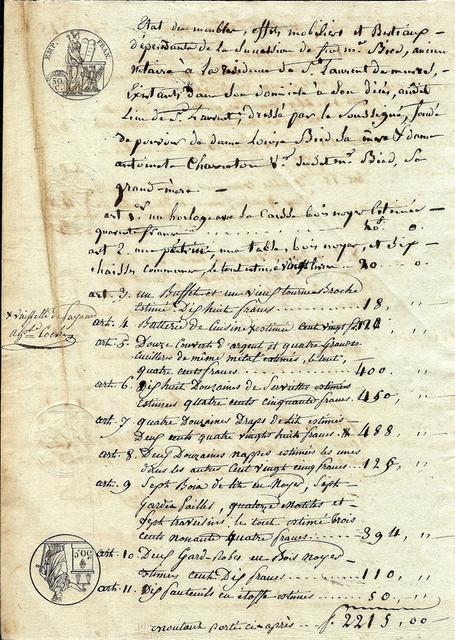 EMP. FRAN.
50 C.
Etat des meubles, effets mobiliers et Bestiaux
dépendants de la succession de feu mr. Bied, ancien
notaire à la résidence de St. Laurent de mures,
Existants dans son domicile à son décès, audit
lieu de St. Laurent; dressé par le Soussigné, fondé
de pouvoir de dame Louise Bied sa mère & dame
antoinette Charreton Ve. dudit mr. Bied, sa
grand-mère. —
art. 1er. un horloge avec la Caisse bois noyer Estimée
quarante francs 40. 0
art. 2. une pétrière une table, bois noyer, et dix
chaises communes, le tout estimé vingt francs 20 0
art. 3. un Buffet et un vieux tourne Broche
estimé Dix huit francs 18, "
x vaisselle & fayance
art. 4. Batterie de Cuisine x estimée cent vingt f. 120
art. 5 Douze Couverts d'argent et quatre Grandes
cuillers de même métal estimés, le tout,
quatre cents francs 400 "
art. 6. Dix huit Douzaines de Serviettes estimées
Estimées quatre cents cinquante francs. 450, "
art. 7 quatre Douzaines Draps de lit estimés
Deux cents quatre vingts huit francs x 488, "
art. 8. Deux Douzaines nappes estimées les unes
dans les autres Cent vingt cinq francs 125, "
art. 9 Sept Bois de lit en Noyer, Sept
Gardes pailles, quatorze Matelats et
Sept traversins, le tout estimé trois
cents nonante quatre francs 394, "
art. 10. Deux Gard-Robes en Bois noyer
estimés cent Dix francs 110, "
art. 11. Dix fauteuils en étoffe estimés 50, "
montant porté ci-après f. 2215, 00
50 C.